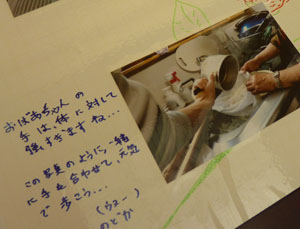 おばあちゃんの
手は、体に対して
強すぎますね…
この写真のように、一緒
に手を合わせて、元気
で歩こう…
(うぉー)
のどか